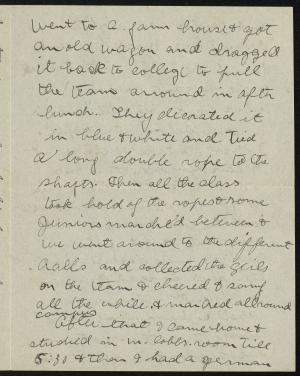 went to a farm house & got
an old wagon and dragged
it back to college to pull
the team arround in after
lunch. They decrated it
in blue & white and tied
a long double rope to the
shafts. Then all the class
took hold of the rope & some
Juniors marched between &
we went around to the different
halls and collected the girls
on the team & cheered & sang
all the while & marched all round
campus
After that I came home &
studied in m. Cobbs. room till
5:30 & then I had a german